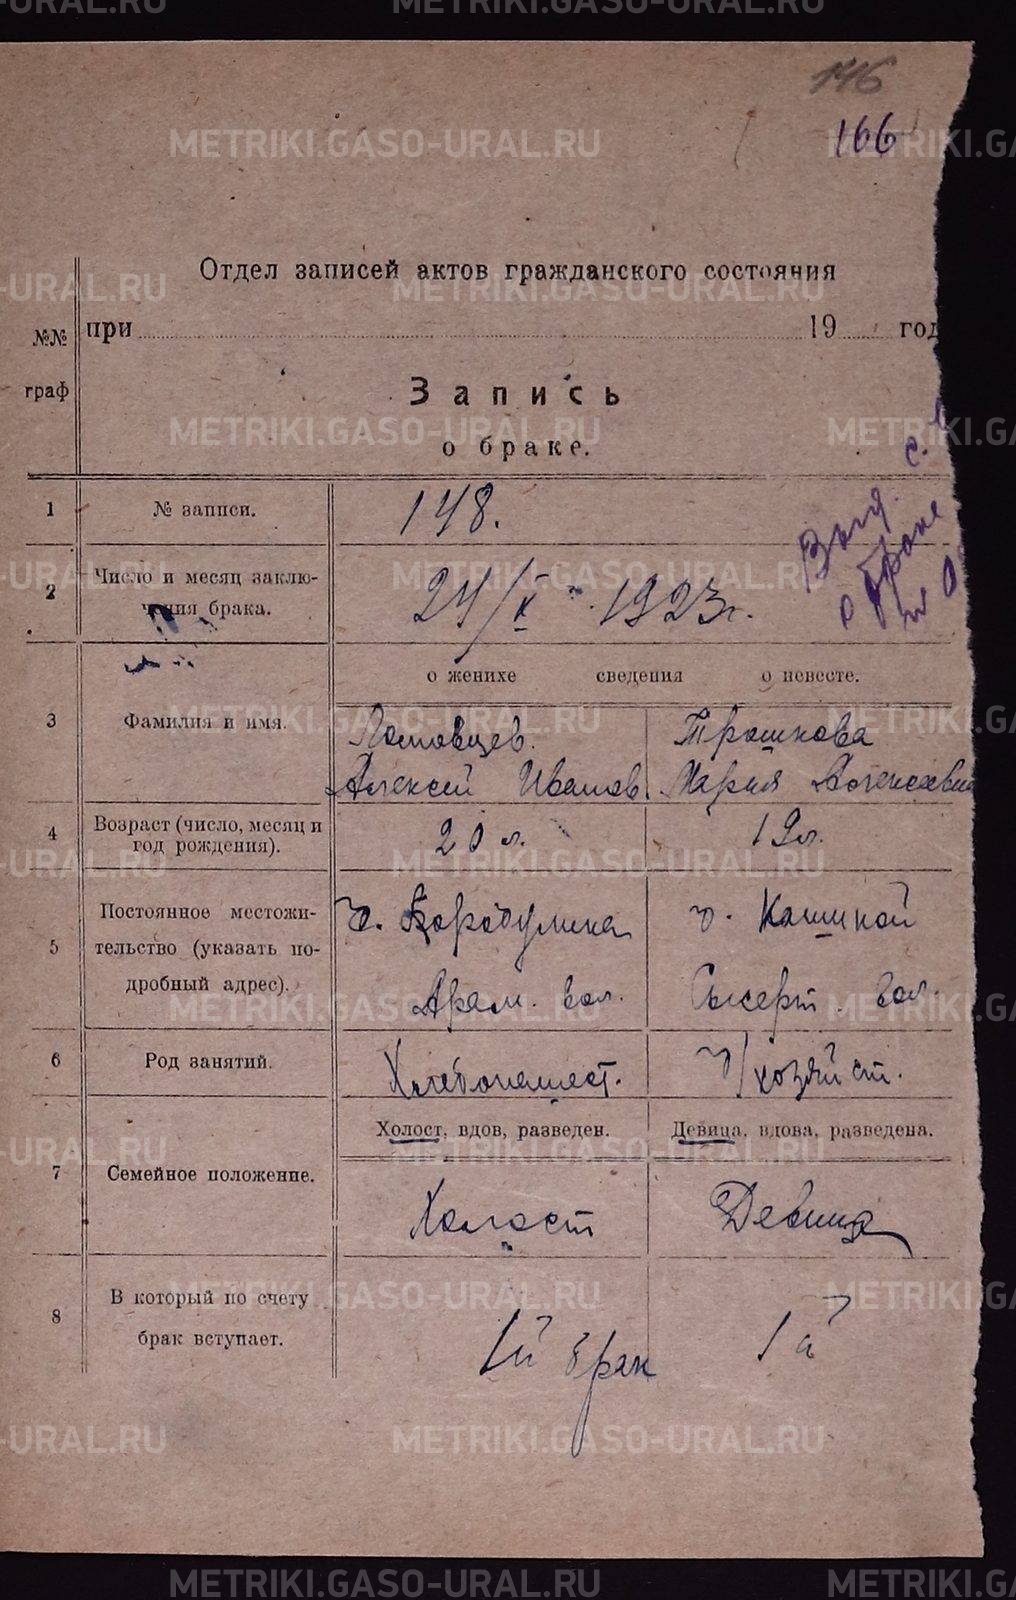 146
166
Отдел записей актов гражданского состояния
при 19 год
№№ граф
Запись
о браке.
1 № записи. 148.
2 Число и месяц заключения брака. 24/X 1923 г.
о женихе сведения о невесте.
3 Фамилия и имя.
Трошкова
Алексей Иванов. Мария Алексеевн
4 Возраст (число, месяц и год рождения). 20 л. 19 л.
5 Постоянное местожи-
тельство (указать по-
дробный адрес).
д. Бородулина д. Кашиной
Арам. вол. Сысерт. вол.
6 Род занятий. Хлебопашест. д/хозяйст.
Холост, вдов, разведен. Девица, вдова, разведена.
7 Семейное положение.
Холост Девица
8 В который по счету
брак вступает.
1й брак 1й
о браке
METRIKI.GASO-URAL.RU